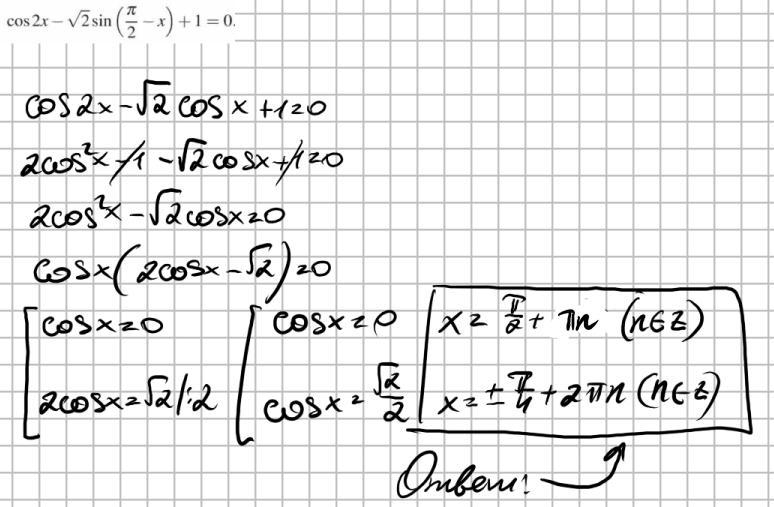 cos 2x − √2 sin (π/2 − x) + 1 = 0.
cos 2x − √2 cos x + 1 = 0
2cos²x − 1 − √2 cos x + 1 = 0
2cos²x − √2 cosx = 0
cosx(2cosx − √2) = 0
[ cosx = 0 [ cosx = 0 x = π/2 + πn (n∈Z)
2cosx = √2 |:2 cosx = √2/2 x = ± π/4 + 2πn (n∈Z)
Ответ: